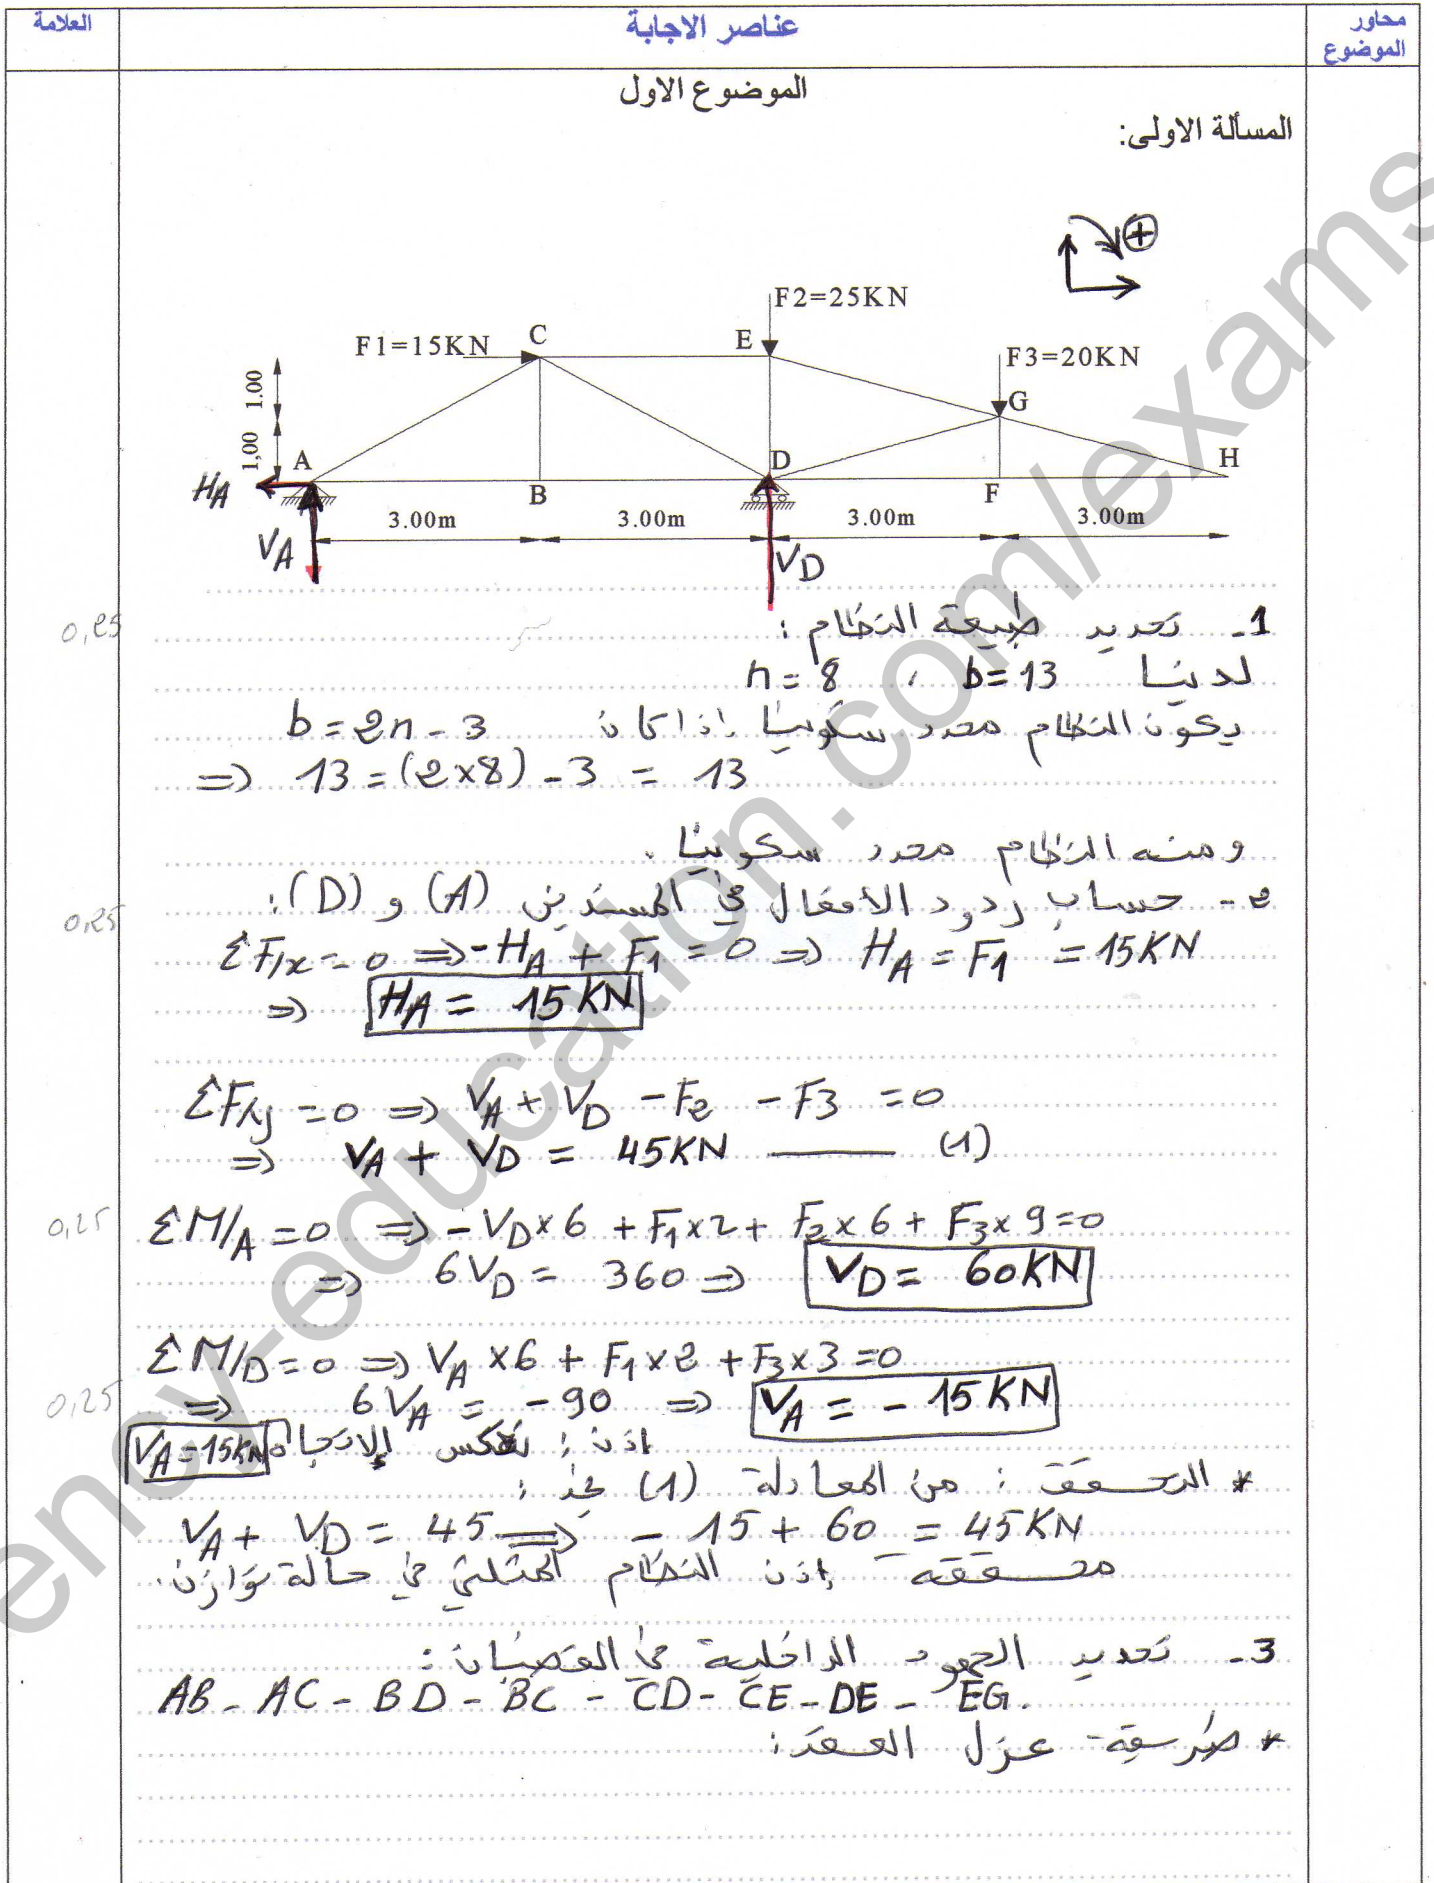 العلامة
عناصر الاجابة
محاور الموضوع
الموضوع الاول
المسألة الاولى:
+
F2=25KN
F1=15KN
C
E
F3=20KN
G
1.00
1,00
A
D
H
HA
B
F
3.00m
3.00m
3.00m
3.00m
VA
VD
0,25
1- تحديد طبيعة النظام :
لدينا b=13 , n=8
يكون النظام محدد سكونيا إذا كان b=2n-3
=> 13=(2x8)-3 = 13
ومنه النظام محدد سكونيا .
0,25
2- حساب ردود الافعال في المسندين (A) و (D):
ΣF/x=0 => -HA + F1 = 0 => HA = F1 = 15KN
=> HA = 15KN
ΣF/y=0 => VA + VD - F2 - F3 = 0
=> VA + VD = 45KN ——— (1)
0,25
ΣM/A=0 => -VD×6 + F1×2 + F2×6 + F3×9=0
=> 6VD = 360 => VD = 60KN
ΣM/D=0 => VA×6 + F1×2 + F3×3=0
0,25
=> 6VA = -90 => VA = -15KN
إذن : نعكس الإتجاه VA=15KN
* التحقق : من المعادلة (1) نجد :
VA + VD = 45 => -15+60 = 45KN
محققة إذن النظام المثلثي في حالة توازن.
3- تحديد الجهود الداخلية في القضبان :
AB - AC - BD - BC - CD - CE - DE - EG.
* طريقة عزل العقد :
ency-education.com/exams